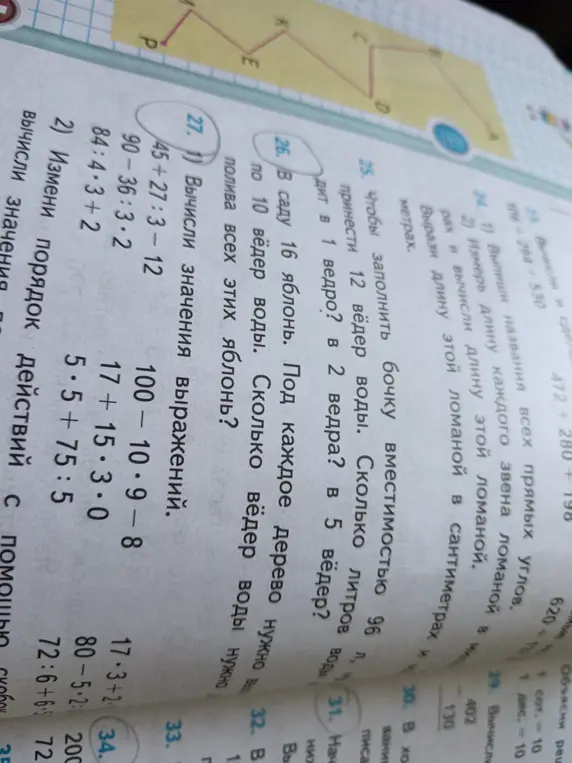 А
С
D
К
Е
Р
472 + 280 + 198
24. 1) Выпиши названия всех прямых углов.
2) Измерь длину каждого звена ломаной в
рах и вычисли длину этой ломаной.
Вырази длину этой ломаной в сантиметрах и
метрах.
25. Чтобы заполнить бочку вместимостью 96 л,
принести 12 вёдер воды. Сколько литров воды
дит в 1 ведро? в 2 ведра? в 5 вёдер?
26. В саду 16 яблонь. Под каждое дерево нужно
по 10 вёдер воды. Сколько вёдер воды нужно
полива всех этих яблонь?
27. 1) Вычисли значения выражений.
45 + 27 : 3 − 12 100 − 10 · 9 − 8 17 · 3 + 2
90 − 36 : 3 · 2 17 + 15 · 3 · 0 80 − 5 · 2
84 : 4 · 3 + 2 5 · 5 + 75 : 5 72 : 6 + 6 :
2) Измени порядок действий с помощью скобок
вычисли значения
620
Объясни
1 сот. = 10
1 дес. = 10
29. Вычисли
402
130
30. В
31. Нач
32. В
33.
34.
200
72